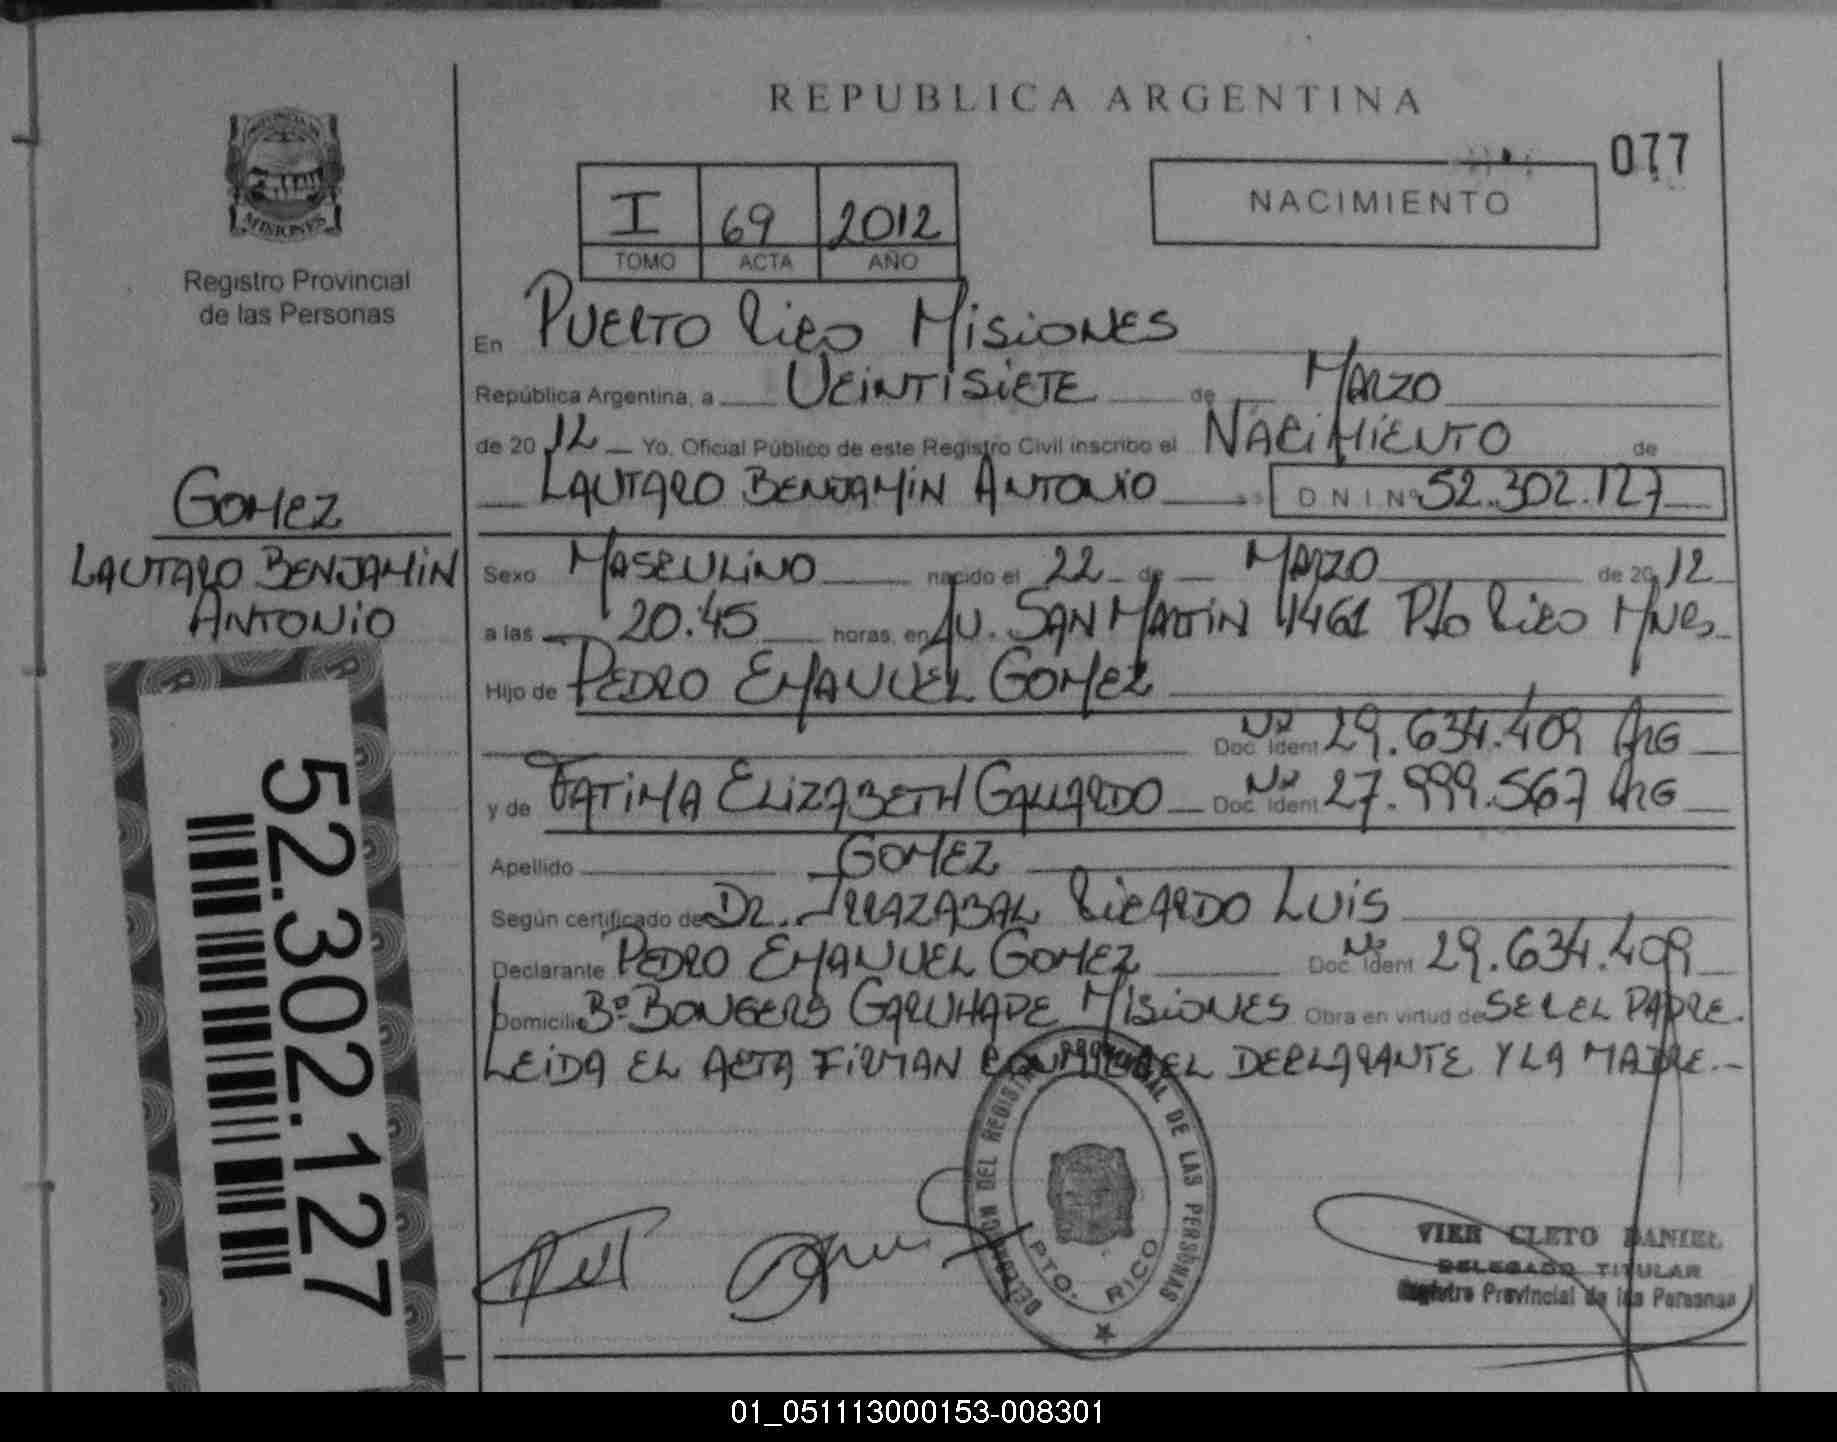 REPUBLICA ARGENTINA
077
MISIONES
Registro Provincial
de las Personas
I 69 2012
TOMO ACTA AÑO
NACIMIENTO
En PUERTO RICO MISIONES
República Argentina, a VEINTISIETE de MARZO
de 2012 Yo, Oficial Público de este Registro Civil inscribo el NACIMIENTO de
LAUTARO BENJAMIN ANTONIO D N I Nº 52.302.127
GOMEZ
LAUTARO BENJAMIN
ANTONIO
52.302.127
Sexo MASCULINO nacido el 22 de MARZO de 2012
a las 20:45 horas, en AV. SAN MARTIN 1461 Pto RICO Mnes.
Hijo de PEDRO EMANUEL GOMEZ
Doc Ident Nº 29.634.409 ARG
y de FATIMA ELIZABETH GALLARDO Doc Ident Nº 27.999.567 ARG
Apellido GOMEZ
Según certificado de DR. IRRAZABAL RICARDO LUIS
Declarante PEDRO EMANUEL GOMEZ Doc Ident Nº 29.634.409
Domicilio Bº BONGERS GARUHAPE MISIONES Obra en virtud de SER EL PADRE.
LEIDA EL ACTA FIRMAN CONMIGO EL DECLARANTE Y LA MADRE.-
DELEGACION DEL REGISTRO PROVINCIAL DE LAS PERSONAS
PTO. RICO
VIER CLETO DANIEL
DELEGADO TITULAR
Registro Provincial de las Personas
01_051113000153-008301